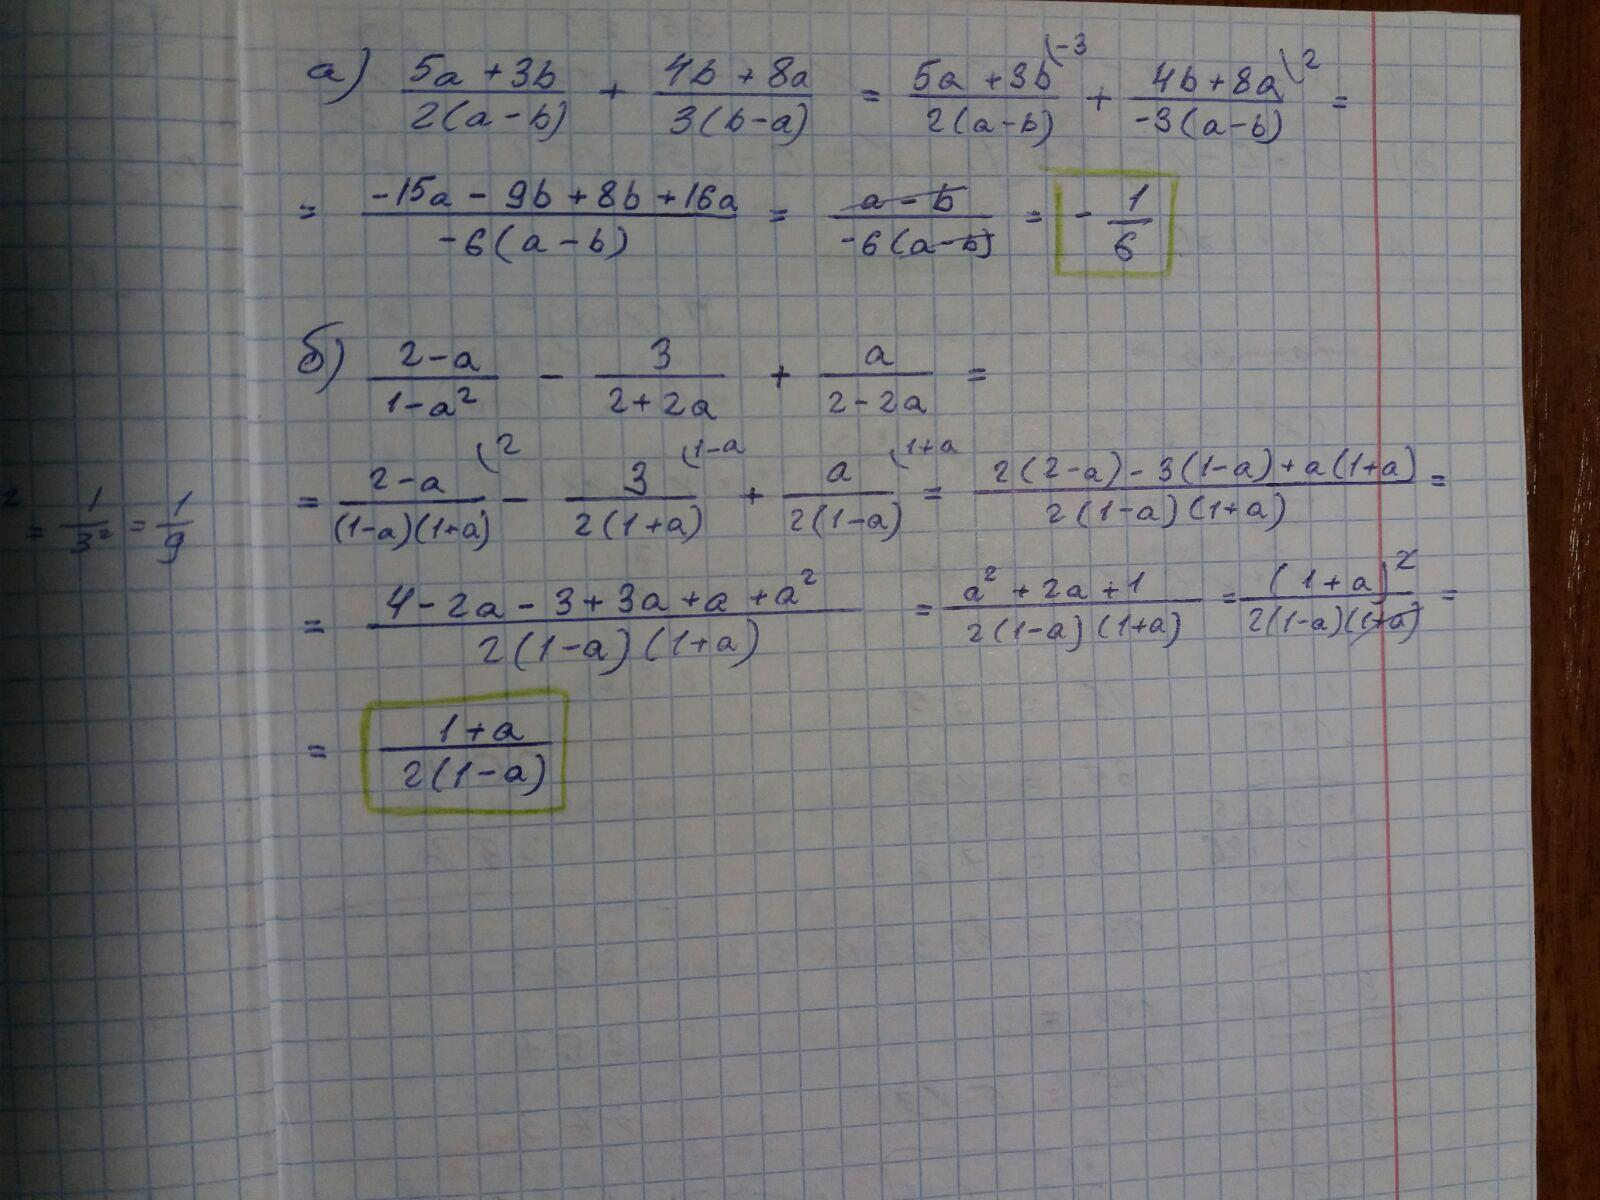 а) (5a + 3b)/(2(a-b)) + (4b + 8a)/(3(b-a)) = (5a + 3b)/(2(a-b)) \-3 + (4b+8a)/(-3(a-b)) \2 =
= (-15a - 9b + 8b + 16a)/(-6(a-b)) = (a-b)/(-6(a-b)) = -1/6
б) (2-a)/(1-a²) - 3/(2+2a) + a/(2-2a) =
= (2-a)/((1-a)(1+a)) \2 - 3/(2(1+a)) \1-a + a/(2(1-a)) \1+a = (2(2-a)-3(1-a)+a(1+a))/(2(1-a)(1+a)) =
2 = 1/3² = 1/9
= (4-2a-3+3a+a+a²)/(2(1-a)(1+a)) = (a²+2a+1)/(2(1-a)(1+a)) = (1+a)²/(2(1-a)(1+a)) =
= (1+a)/(2(1-a))